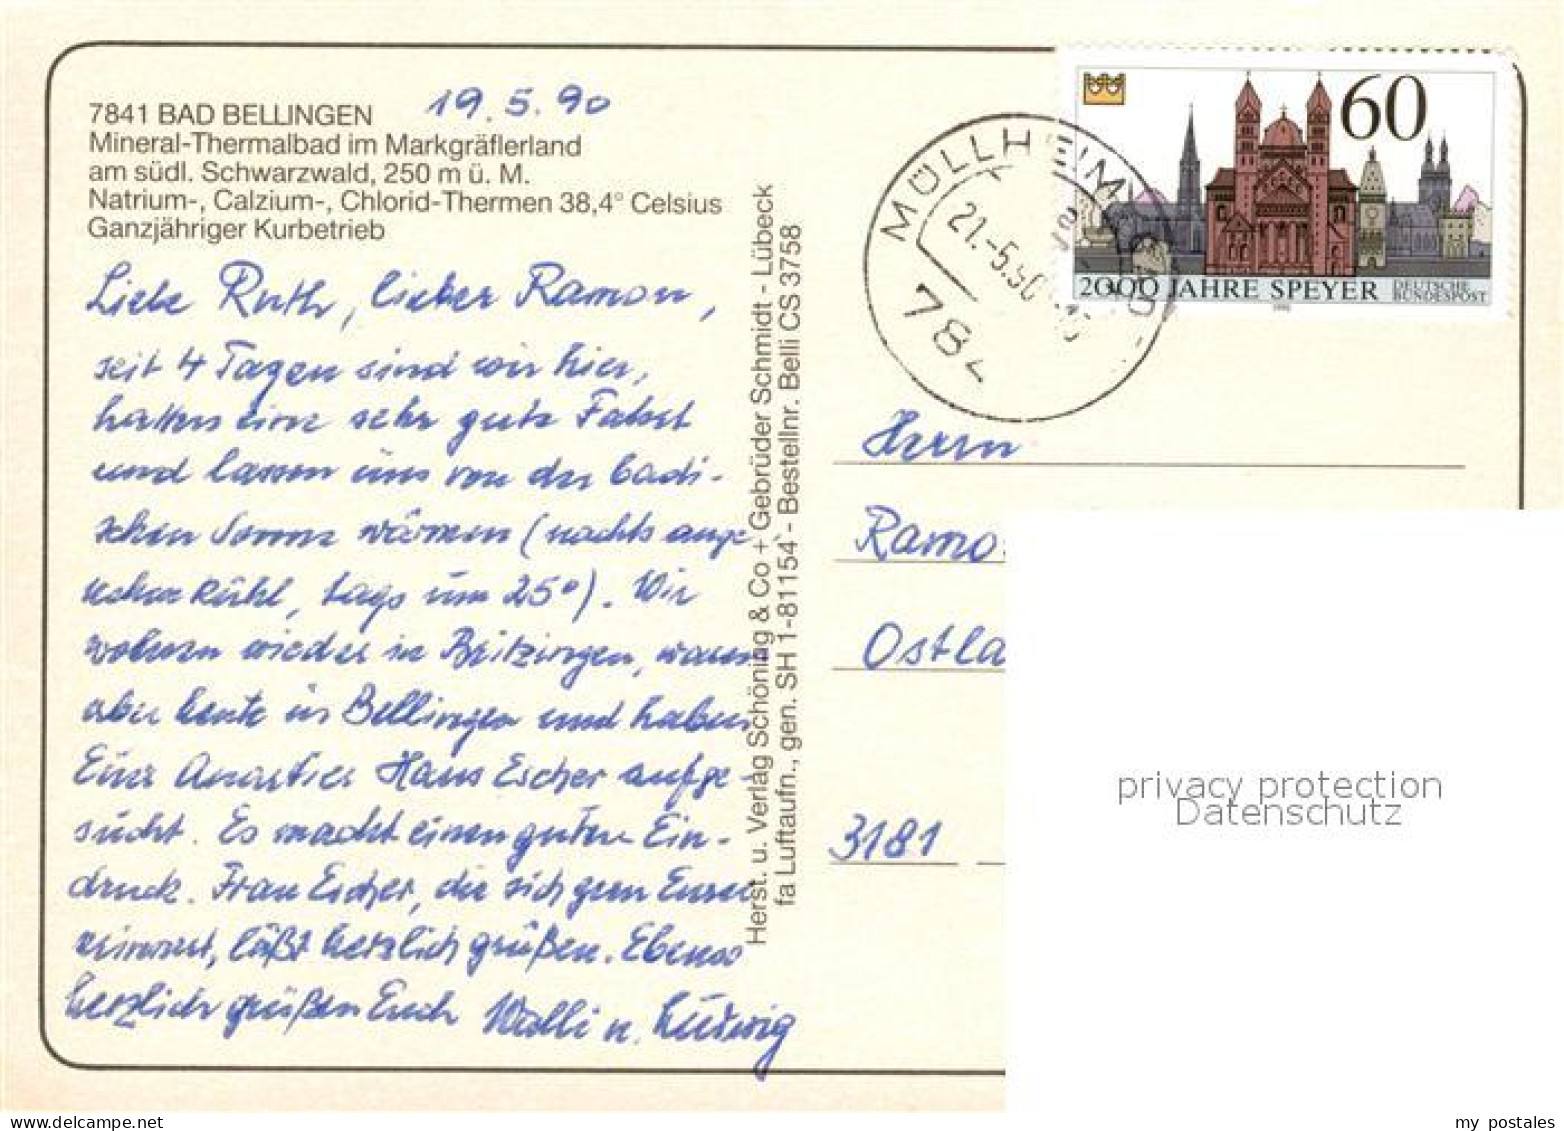 7841 BAD BELLINGEN
19.5.90
Mineral-Thermalbad im Markgräflerland
am südl. Schwarzwald, 250 m ü. M.
Natrium-, Calzium-, Chlorid-Thermen 38,4° Celsius
Ganzjähriger Kurbetrieb
Liebe Ruth, lieber Ramon,
seit 4 Tagen sind wir hier,
hatten eine sehr gute Fahrt
und lassen uns von der badi-
schen Sonne wärmen (nachts ange-
nehm kühl, tags um 25°). Wir
wohnen wieder in Britzingen, waren
aber heute in Bellingen und haben
Euer Quartier Haus Escher aufge-
sucht. Es macht einen guten Ein-
druck. Frau Escher, die sich gern Eurer
erinnert, läßt herzlich grüßen. Ebenso
herzlich grüßen Euch Walli u. Ludwig
Herst. u. Verlag Schöning & Co + Gebrüder Schmidt - Lübeck
fa Luftaufn., gen. SH 1-81154 - Bestellnr. Belli CS 3758
MÜLLHEIM
21.-5.90
784
60
2000 JAHRE SPEYER
DEUTSCHE
BUNDESPOST
Herrn
Ramo
Ostla
3181
privacy protection
Datenschutz
my postales